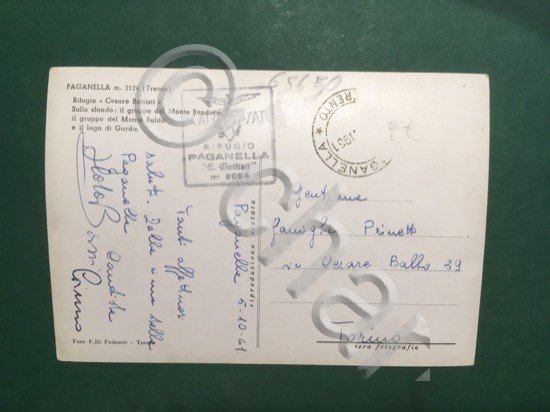 PAGANELLA m. 2124 (Trento)
Rifugio « Cesare Battisti »
Sullo sfondo: il gruppo del Monte Bondone,
il gruppo del Monte Baldo
e il lago di Garda.
65650
CAI SAT
RIFUGIO
PAGANELLA
"C. Battisti"
m. 2084
PAGANELLA ★ TRENTO
1961
Paganella 5.10.61
Tanti affettuosi
saluti dalla
Paganella
Gent.me
Famiglia Prinetti
via Cesare Balbo 39
Torino
vera fotografia
Foto F.lli Pedrotti - Trento
riproduzione vietata
char